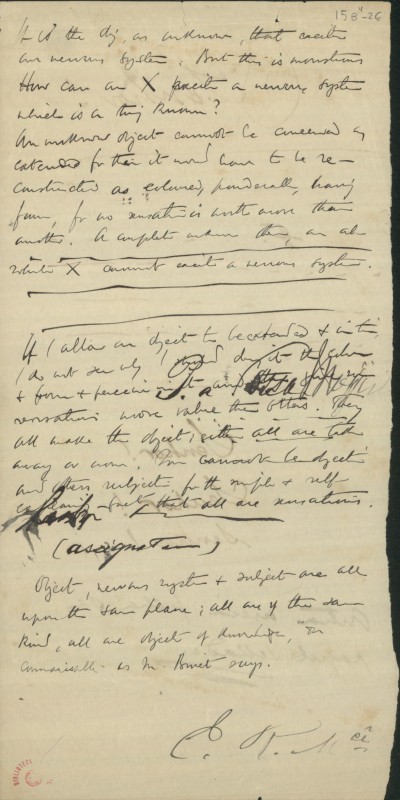 158''-26
It is the obj, as unknown, that excite
our nervous system. But this is monstrous
How can an X excite a nervous system
which is a thing known?
An unknown object cannot be conceived as
extended for then it would have to be re-
constructed as coloured, ponderable, having
form, for no sensation is worth more than
another. A complete unknown then, an ab-
solute X cannot excite a nervous system.
If I allow an object to be extended & in time
I do not see why I should deny it the colour
& form &
sensations more value than others. They
all make the object; either all are taken
away or none. Some cannot be objective
and others subject. for the simple & self
fact that all are sensations.
(assignation)
Object, nervous system & subject are all
upon the same plane; all are of the same
kind, all are object of knowledge, or
as M. Binet says.